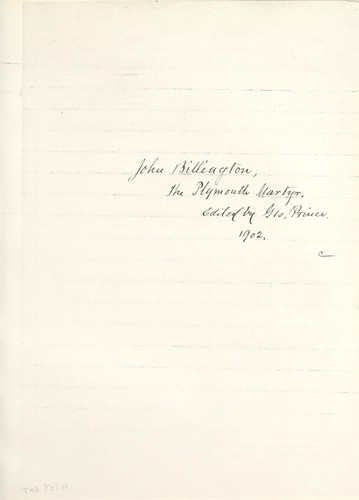 John Billington,
The Plymouth Martyr.
Edited by Geo. Prince.
1902.
c